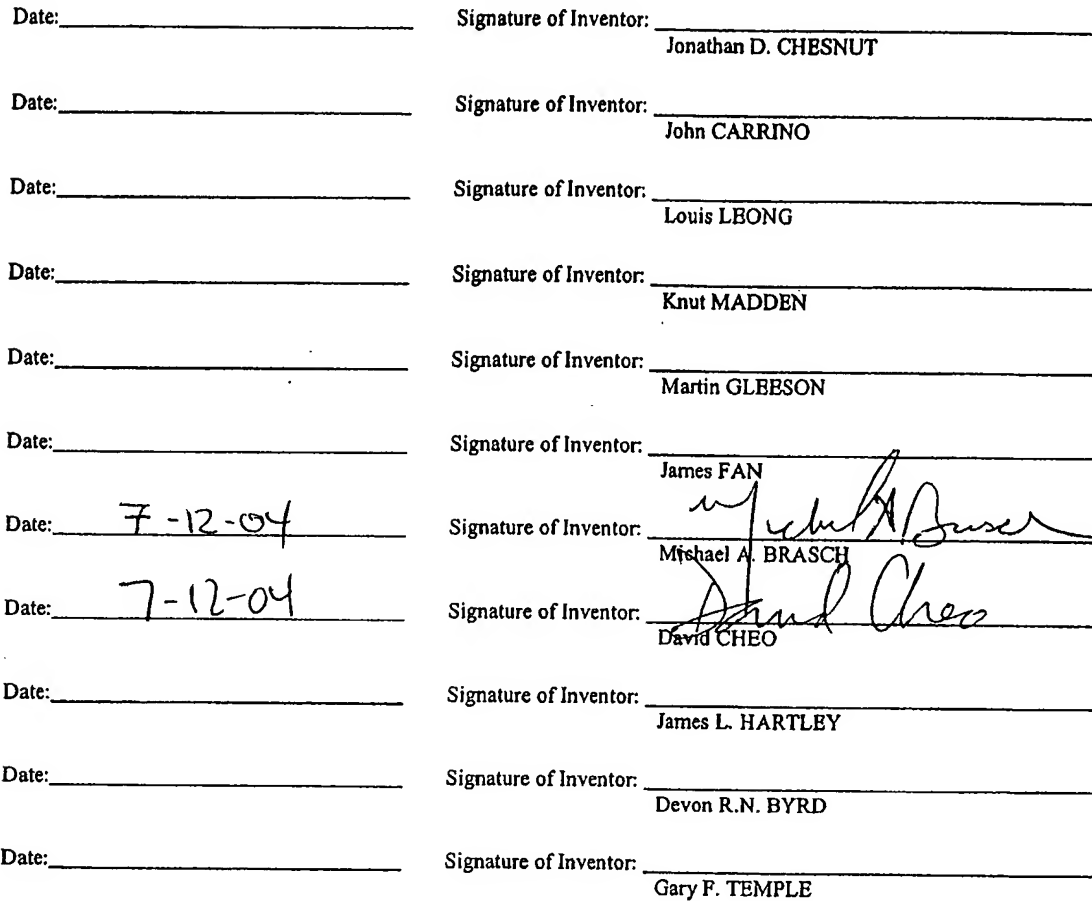 Date: Signature of Inventor:
Jonathan D. CHESNUT
Date: Signature of Inventor:
John CARRINO
Date: Signature of Inventor:
Louis LEONG
Date: Signature of Inventor:
Knut MADDEN
Date: Signature of Inventor:
Martin GLEESON
Date: Signature of Inventor:
James FAN
Date: 7-12-04 Signature of Inventor: Michael A Brasch
Michael A. BRASCH
Date: 7-12-04 Signature of Inventor: David Cheo
David CHEO
Date: Signature of Inventor:
James L. HARTLEY
Date: Signature of Inventor:
Devon R.N. BYRD
Date: Signature of Inventor:
Gary F. TEMPLE